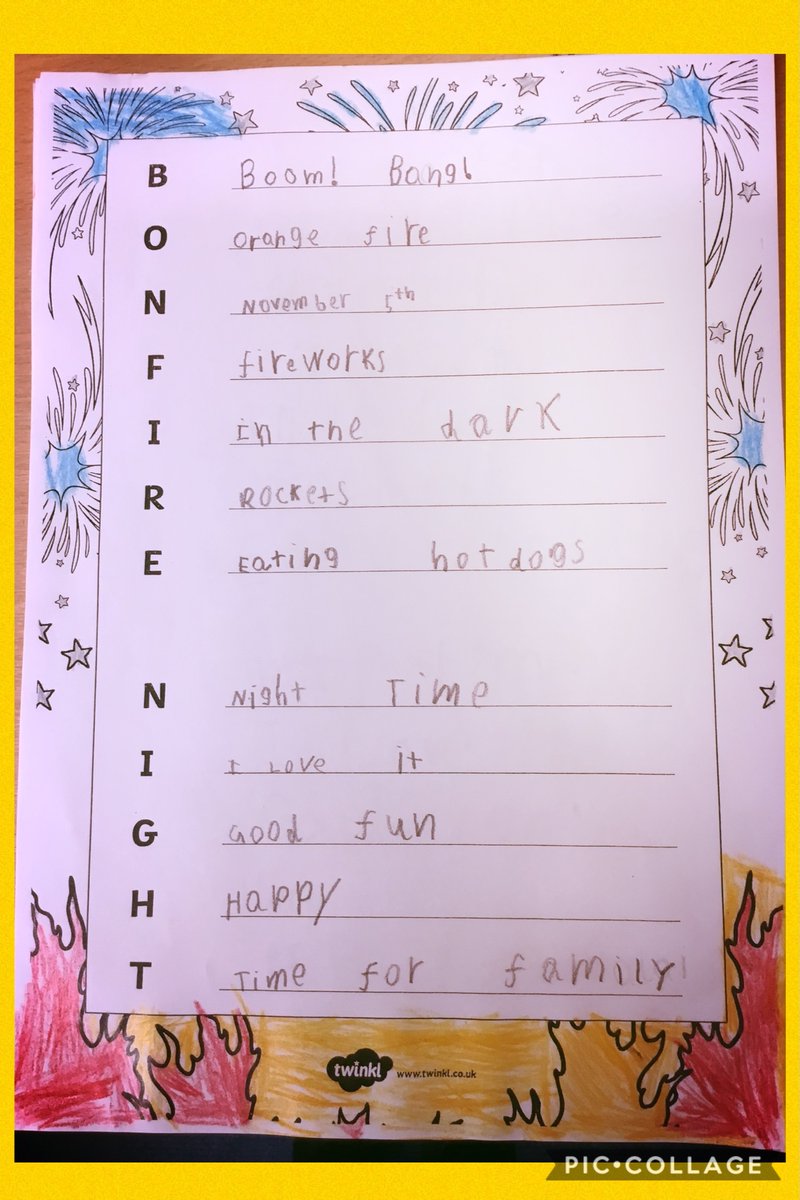 B Boom! Bang!
O Orange fire
N November 5th
F fireworks
I In the dark
R Rockets
E Eating hotdogs
N Night Time
I I Love it
G Good fun
H Happy
T Time for family!
twinkl www.twinkl.co.uk
PIC•COLLAGE